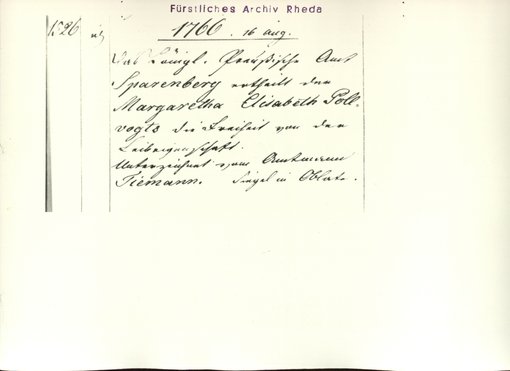 Fürstliches Archiv Rheda
1766. 16 aug.
Das Königl. Preußische Amt
Sparenberg ertheilt der
Margaretha Elisabeth Poll-
vogts die Freiheit von der
Leibeigenschaft.
Unterzeichnet vom Amtmann
Tiemann. Siegel in Oblate.